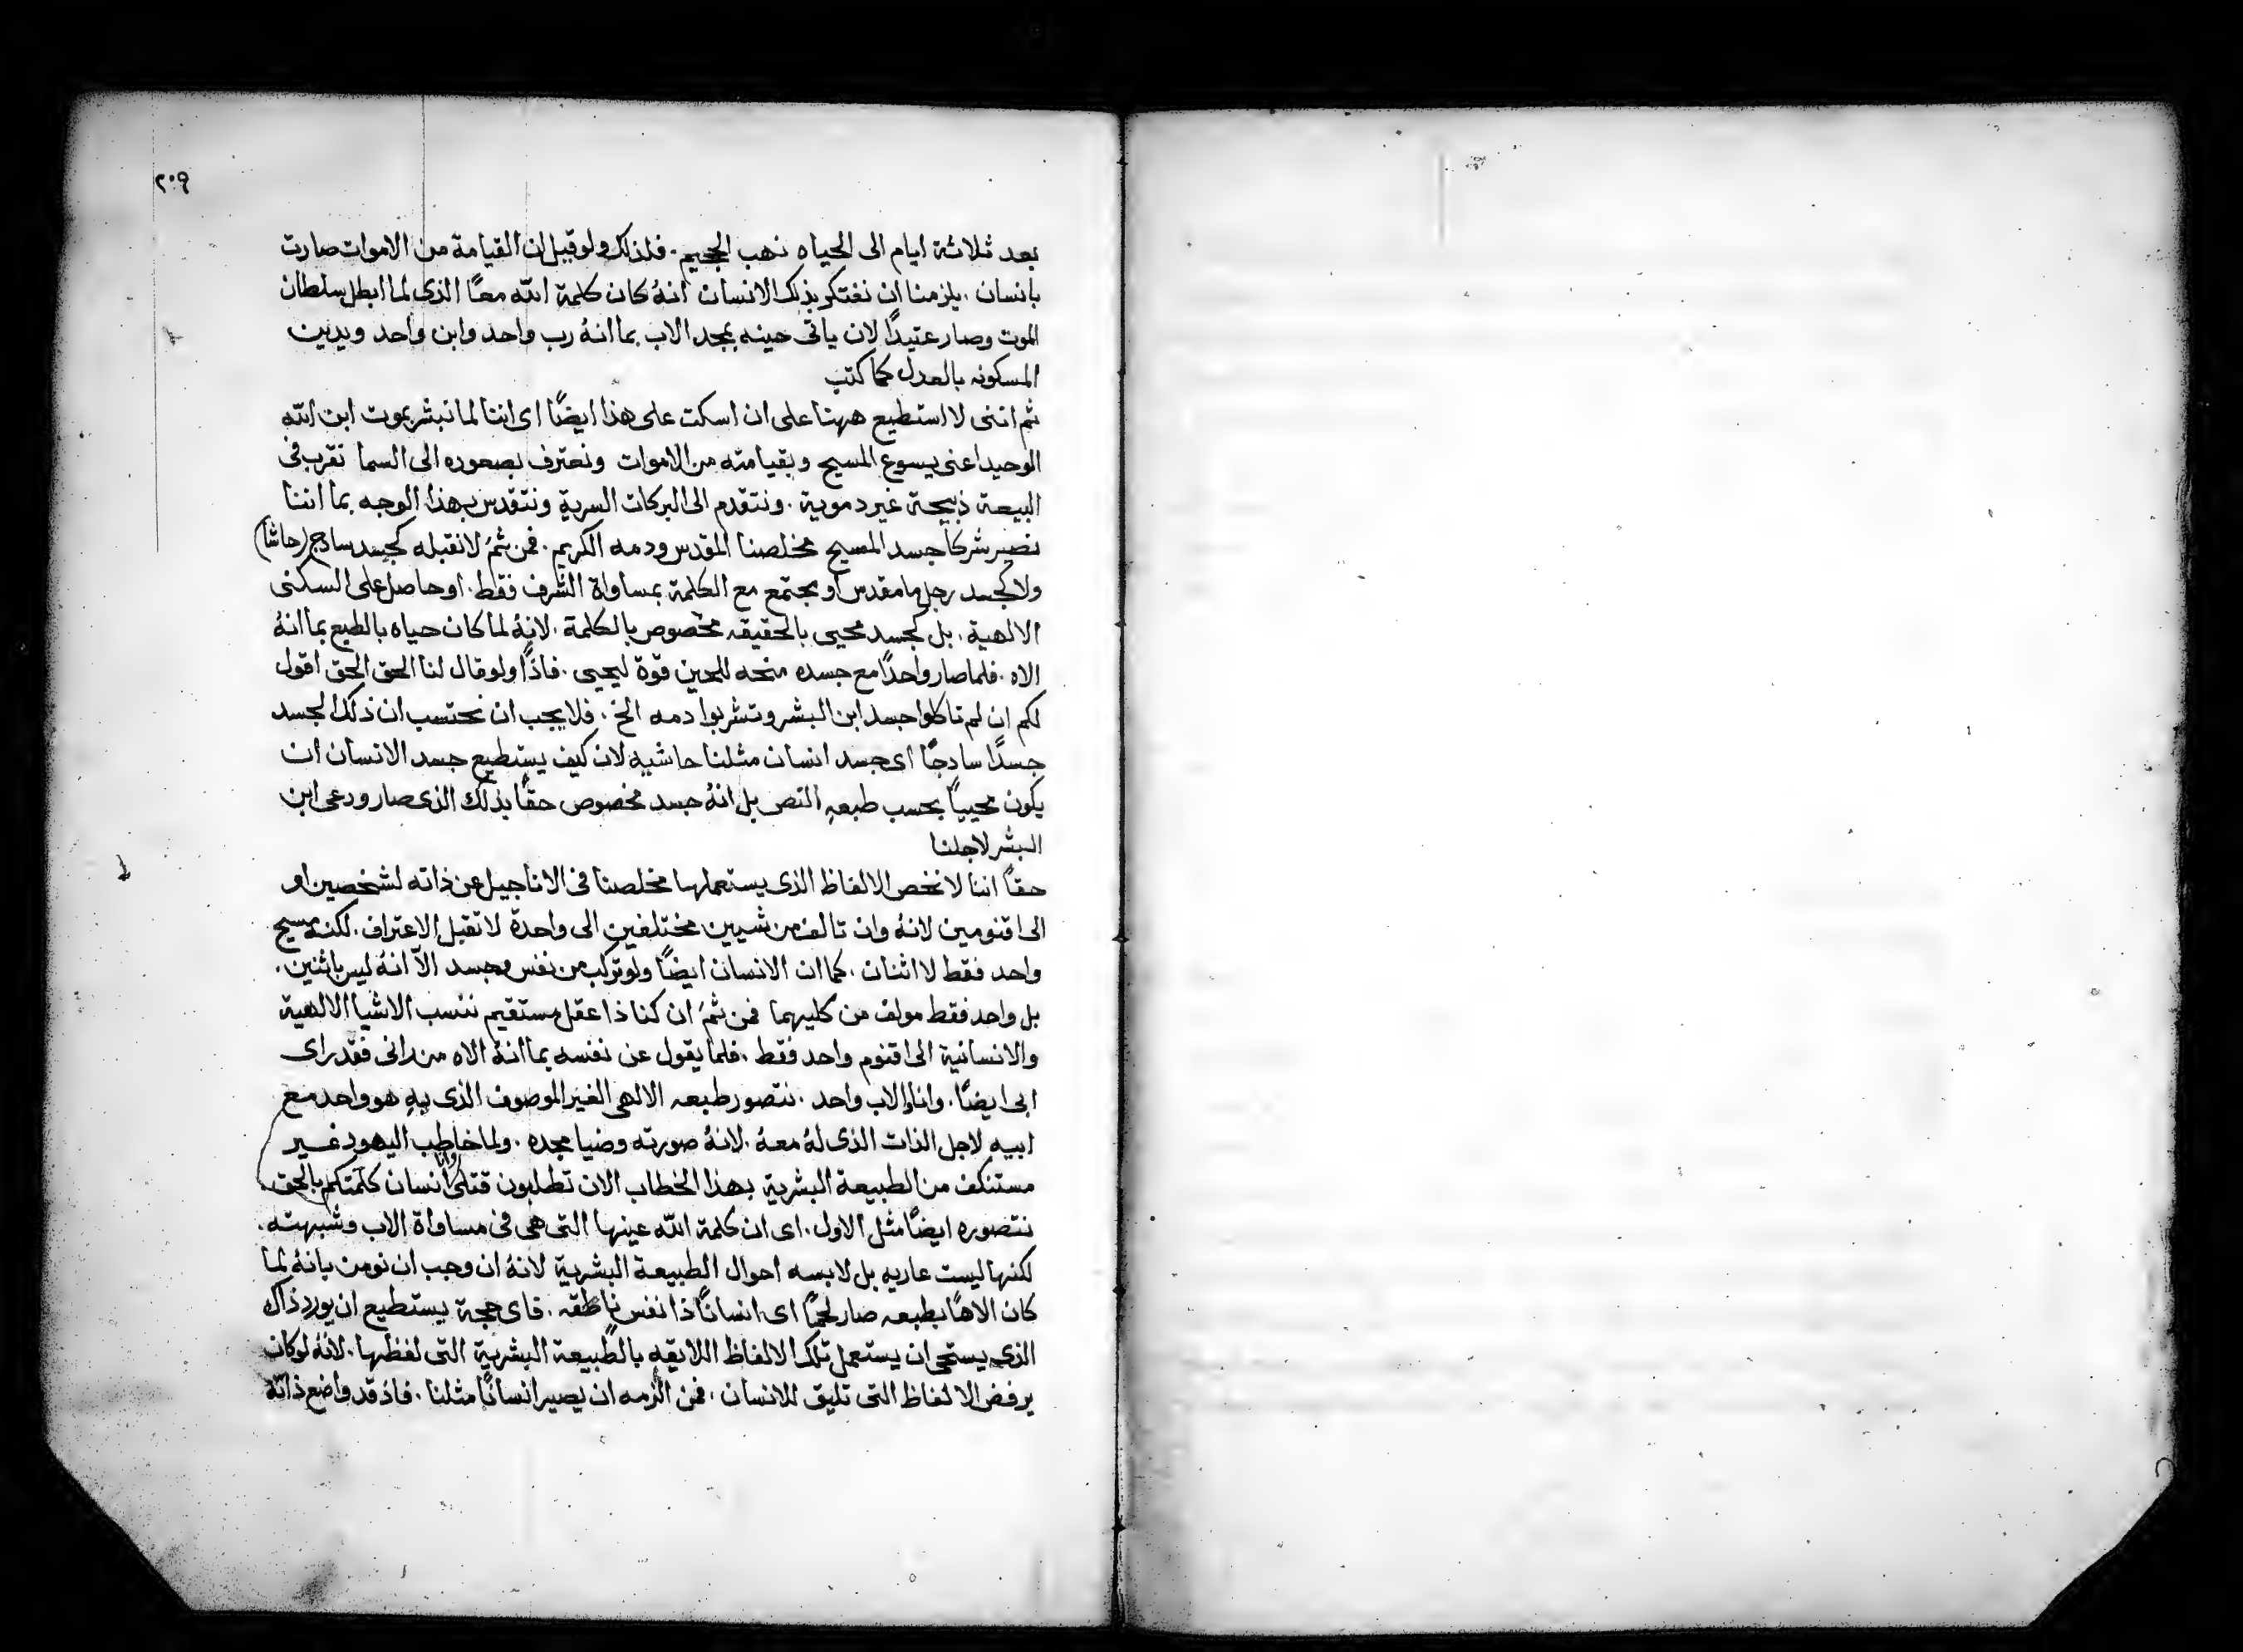 ٢٠٩
بعد ثلاثة ايام الى الحياه نهب الجحيم. فلذلك ولو قيل ان القيامة من الاموات صارت
بانسان. يلزمنا ان نفتكر بذلك الانسان انهُ كان كلمة الله معًا الذى لما ابطل سلطان
الموت وصار عتيدًا لان ياتى حينه بمجد الاب بما انهُ رب واحد وابن واحد ويدين
المسكونه بالعدل كما كتب
ثم اننى لا استطيع ههنا على ان اسكت على هذا ايضًا اى اننا لما نبشر بموت ابن الله
الوحيد اعنى يسوع المسيح وبقيامته من الاموات ونعترف بصعوده الى السما نقرب فى
البيعة ذبيحة غير دموية. ونتقدم الى البركات السرية ونتقدس بهذا الوجه بما اننا
نصير شركا جسد المسيح مخلصنا المقدس ودمه الكريم. فمن ثمَ لا نقبله كجسد سادج (حاشا)
ولا كجسد رجل ما مقدس او مجتمع مع الكلمة بمساواة الشرف فقط. او حاصل على السكنى
الالهية. بل كجسد محيى بالحقيقه مخصوص بالكلمة. لانهُ لما كان حياه بالطبع بما انهُ
الاه. فلما صار واحدًا مع جسده منحه للحين قوة ليحيى. فاذًا ولو قال لنا الحق الحق اقول
لكم ان لم تاكلوا جسد ابن البشر وتشربوا دمه الخ. فلا يجب ان نحتسب ان ذلك الجسد
جسدًا سادجًا اى جسد انسان مثلنا حاشيه لان كيف يستطيع جسد الانسان ان
يكون محييًا بحسب طبعهِ النص بل انهُ جسد مخصوص حقًا بذلك الذى صار ودعى ابن
البشر لاجلنا
حقًا اننا لا نخص الالفاظ الذى يستعملها مخلصنا فى الاناجيل عن ذاته لشخصين او
الى اقنومين لانهُ وان تالف من شيين مختلفين الى واحدة لا تقبل الاعتراف. لكنه مسيح
واحد فقط لا اثنان. كما ان الانسان ايضًا ولو تركب من نفس وجسد الاّ انهُ ليس باثنين.
بل واحد فقط مولف من كليهما فمن ثمَ ان كنا ذا عقل مستقيم ننسب الاشيا الالهية
والانسانية الى اقنوم واحد فقط. فلما يقول عن نفسه بما انهُ الاه من رانى فقد راى
ابى ايضًا. وانا والاب واحد. نتصور طبعه الالهى الغير الموصوف الذى بهِ هو واحد مع
ابيه لاجل الذات الذى لهُ معهُ. لانهُ صورته وضيا مجده. ولما خاطب اليهود غير
مستنكف من الطبيعة البشرية بهذا الخطاب الان تطلبون قتلى وانا انسان كلمتكم بالحق.
نتصوره ايضًا مثل الاول. اى ان كلمة الله عينها التى هى فى مساواة الاب وشبهته.
لكنها ليست عاريه بل لابسه احوال الطبيعة البشرية لانهُ ان وجب ان نومن بانهُ لما
كان الاهًا بطبعه صار لحمًا اى انسانًا ذا نفس ناطقه. فاى حجة يستطيع ان يورد ذاك
الذى يستحى ان يستعمل تلك الالفاظ اللايقه بالطبيعة البشرية التى لفظها. لانهُ لو كان
يرفض الالفاظ التى تليق للانسان. فمن الزمه ان يصير انسانًا مثلنا. فاذ قد واضع ذاته